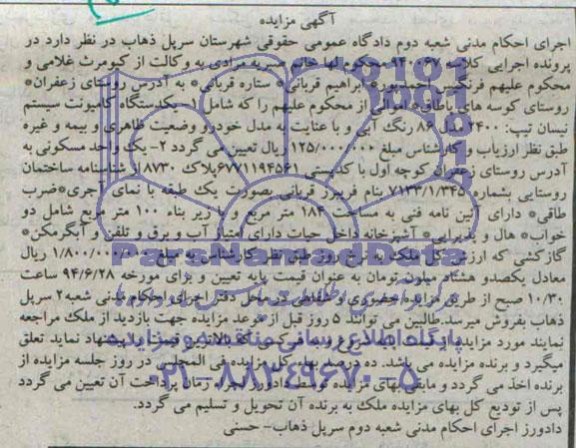 آگهی مزایده
اجرای احکام مدنی شعبه دوم دادگاه عمومی حقوقی شهرستان سرپل ذهاب در نظر دارد در
پرونده اجرایی کلاسه ۹۴۰۰۶۷ محکوم لها خانم مرادی به وکالت از کیومرث غلامی و
محکوم علیهم فرنگیس ابراهیم قربانی* ستاره قربانی* به آدرس روستای زعفران*
روستای کوسه های باطاق* اموالی از محکوم علیهم را که شامل ۱- یکدستگاه کامیونت سیستم
نیسان تیپ: ۲۴۰۰ مدل ۸۶ رنگ آبی و با عنایت به مدل خودرو وضعیت ظاهری و بیمه و غیره
طبق نظر ارزیاب و کارشناس مبلغ ۱۲۵/۰۰۰/۰۰۰ ریال تعیین می گردد ۲- یک واحد مسکونی به
آدرس روستای زعفران کوچه اول با کدپستی ۶۷۷۱۱۹۴۵۶۱ پلاک ۸۷۳۰ از شناسنامه ساختمان
روستایی بشماره ۷۱۳۳/۱/۳۴۵ بنام فریبرز قربانی بصورت یک طبقه با نمای آجری*ضرب
طاقی* دارای آئین نامه فنی به مساحت ۱۸۴ متر مربع و با زیر بناء ۱۰۰ متر مربع شامل دو
خواب* هال و پذیرایی* آشپزخانه داخل حیات دارای امتیاز آب و برق و تلفن و آبگرمکن*
گازکشی که ارزش کل ملک به نرخ روز طبق نظر کارشناس به مبلغ ۱/۸۰۰/۰۰۰/۰۰۰ ریال
معادل یکصدو هشتاد میلون تومان به عنوان قیمت پایه تعیین و برای مورخه ۹۴/۶/۲۸ ساعت
۱۰/۳۰ صبح از طریق مزایده حضوری و شفاهی در محل دفتر اجرای احکام مدنی شعبه ۲ سرپل
ذهاب بفروش میرسد.طالبین می توانند ۵ روز قبل از موعد مزایده جهت بازدید از ملک مراجعه
نمایند مورد مزایده از قیمت پایه شروع و به کسی که بالاترین قیمت را پیشنهاد نماید تعلق
میگیرد و برنده مزایده می باشد. ده درصد بهاء کل مزایده فی المجلس در روز جلسه مزایده از
برنده اخذ می گردد و مابقی بهای مزایده توسط دادورز اجراء زمان پرداخت آن تعیین می گردد
پس از تودیع کل بهای مزایده ملک به برنده آن تحویل و تسلیم می گردد.
دادورز اجرای احکام مدنی شعبه دوم سرپل ذهاب- حسنی
ParsNamadData
پایگاه اطلاع رسانی مناقصه و مزایده
۰۲۱-۸۸۳۴۹۶۷۰-۵